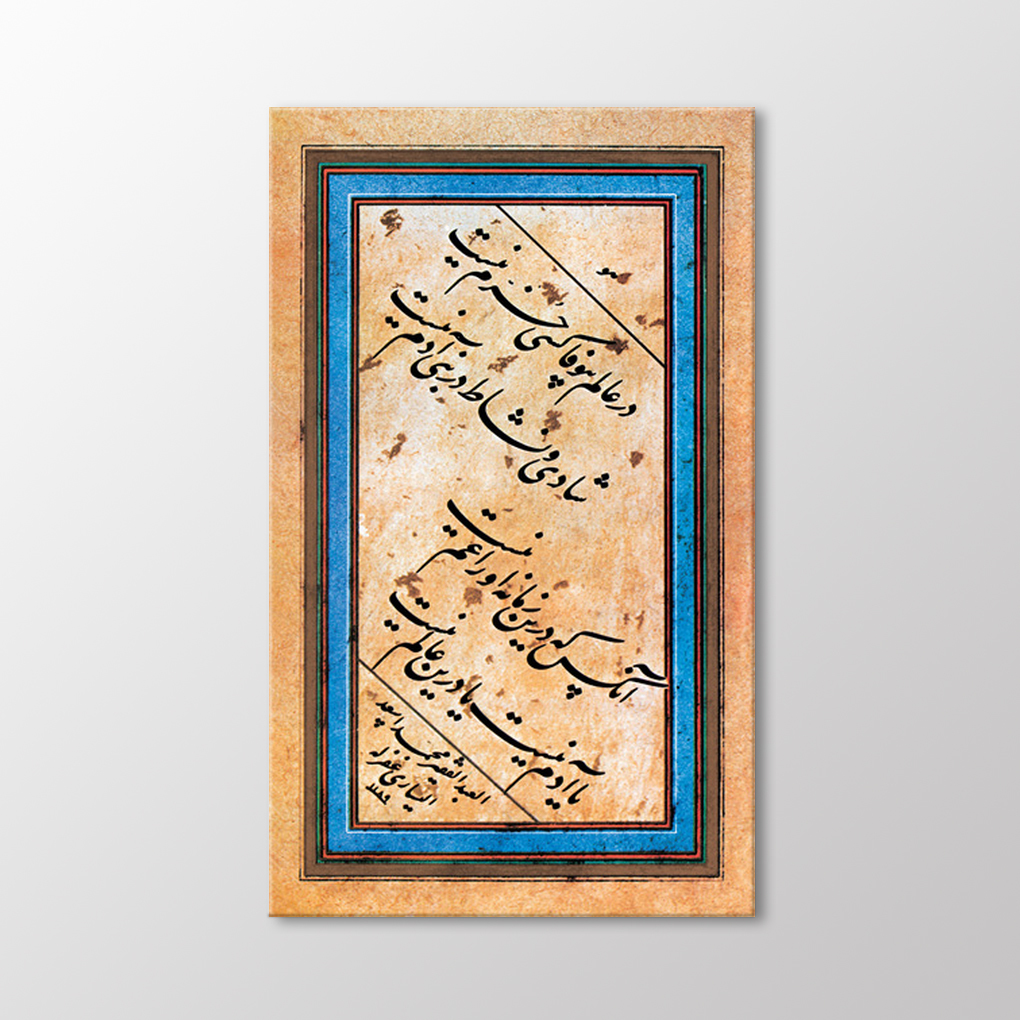 هو
در عالم بیوفا کسی خرم نیست
شادی و نشاط در بنی آدم نیست
آنکس که درین زمانه او را غم نیست
یا آدم نیست یا درین عالم نیست
العبد الفقیر محمد اسعد
الیساری غفر له
۱۱۸۹